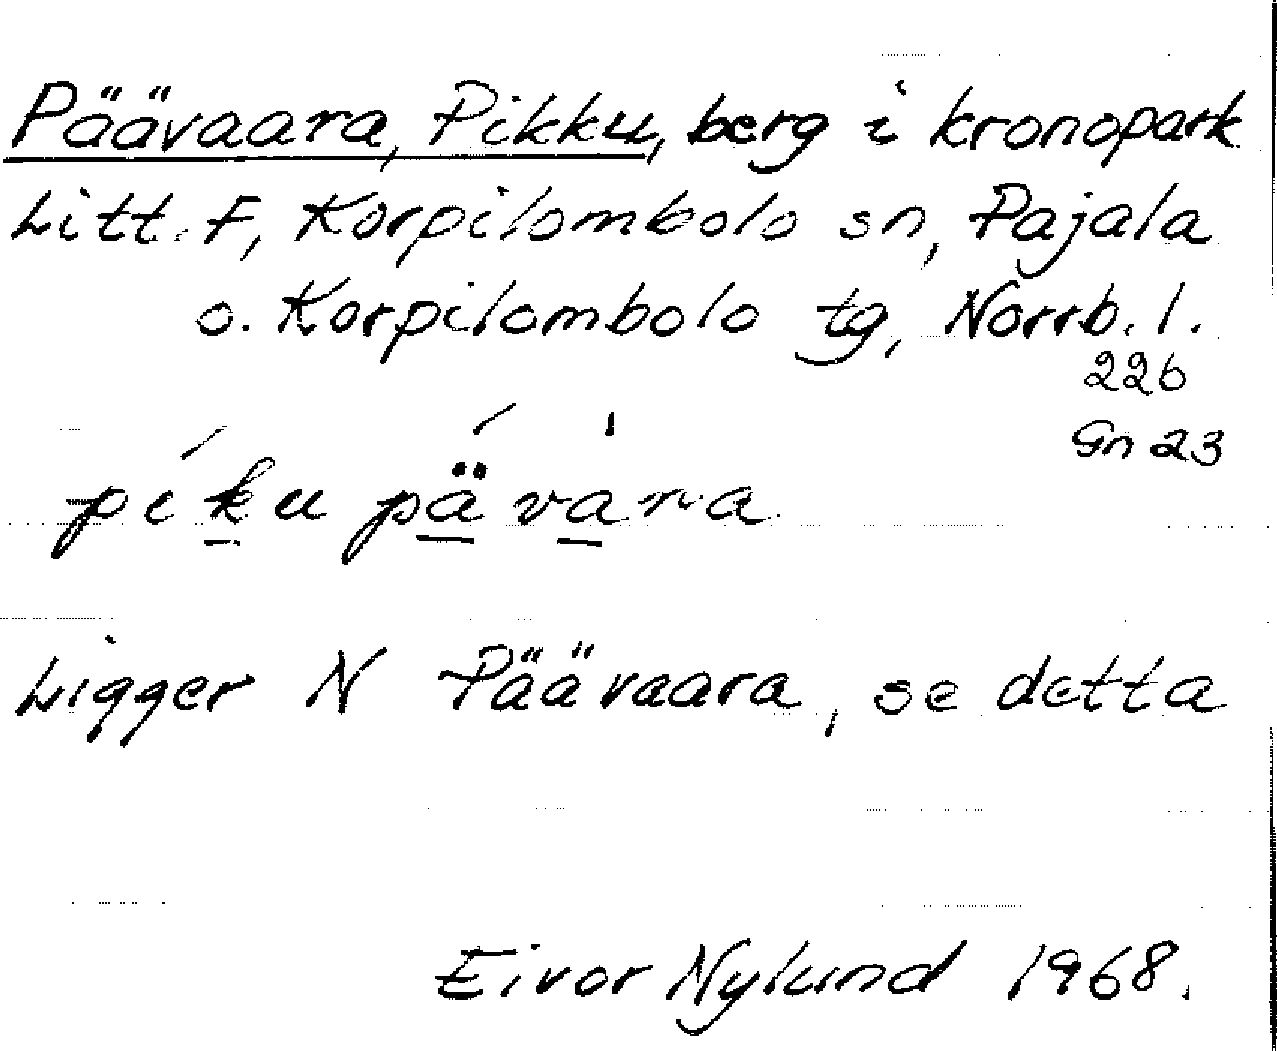 Päävaara, Pikku, berg i kronopark
Litt. F, Korpilombolo sn, Pajala
o. Korpilombolo tg, Norrb. l.
22b
Gn 23
píku pä́vàra
Ligger N Päävaara, se detta
Eivor Nylund 1968.